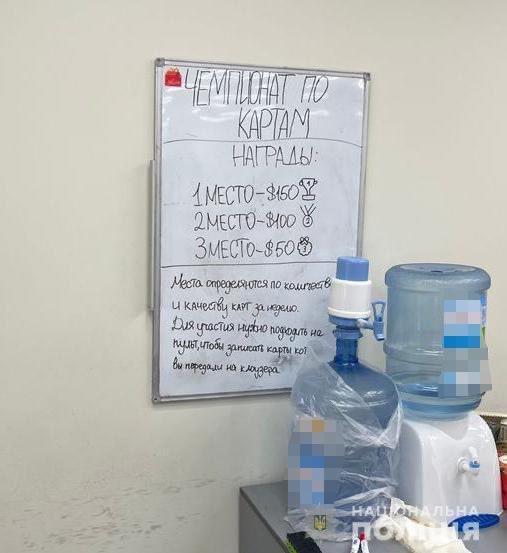 ЧЕМПИОНАТ ПО
КАРТАМ
НАГРАДЫ:
1 МЕСТО-$150 1
2 МЕСТО-$100 2
3 МЕСТО-$50 3
Места определяются по количеству
и качеству карт за неделю.
Для участия нужно подходить на
пульт, чтобы записать карты кот
вы передали на клоузера
НАЦІОНАЛЬНА
ПОЛІЦІЯ